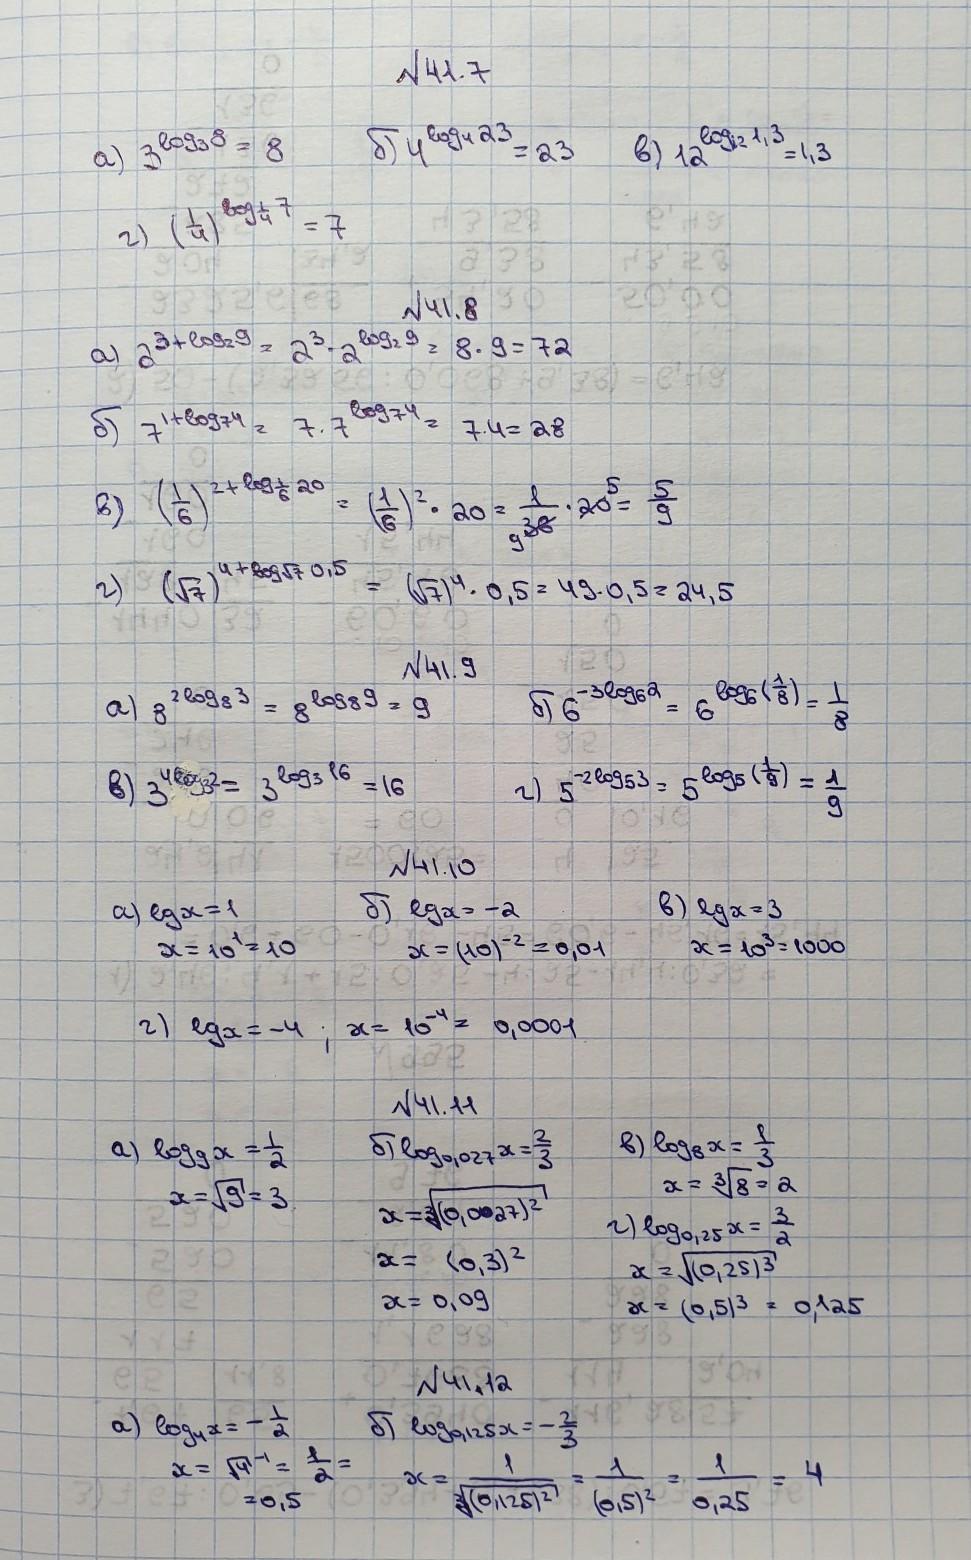 №41.7
а) 3^log₃8 = 8 б) 4^log₄23 = 23 в) 12^log₁₂1,3 = 1,3
г) (1/4)^log_{1/4}7 = 7
№41.8
а) 2^{3+log₂9} = 2³ · 2^log₂9 = 8 · 9 = 72
б) 7^{1+log₇4} = 7 · 7^log₇4 = 7 · 4 = 28
в) (1/6)^{2+log_{1/6}20} = (1/6)² · 20 = 1/36 9 · 20 5 = 5/9
г) (√7)^{4+log_{√7}0,5} = (√7)⁴ · 0,5 = 49 · 0,5 = 24,5
№41.9
а) 8^{2log₈3} = 8^{log₈9} = 9 б) 6^{-3log₆2} = 6^{log₆(1/8)} = 1/8
в) 3^{4log₃2} = 3^{log₃16} = 16 г) 5^{-2log₅3} = 5^{log₅(1/9)} = 1/9
№41.10
а) lgx = 1 б) lgx = -2 в) lgx = 3
x = 10¹ = 10 x = (10)⁻² = 0,01 x = 10³ = 1000
г) lgx = -4 ; x = 10⁻⁴ = 0,0001
№41.11
а) log₉x = 1/2 б) log_{0,027}x = 2/3 в) log₈x = 1/3
x = √9 = 3 x = ∛(0,0027)² x = ∛8 = 2
г) log_{0,25}x = 3/2
x = (0,3)² x = √(0,25)³
x = 0,09 x = (0,5)³ = 0,125
№41.12
а) log₄x = -1/2 б) log_{0,125}x = -2/3
x = √4⁻¹ = 1/2 = x = 1/∛(0,125)² = 1/(0,5)² = 1/0,25 = 4
= 0,5